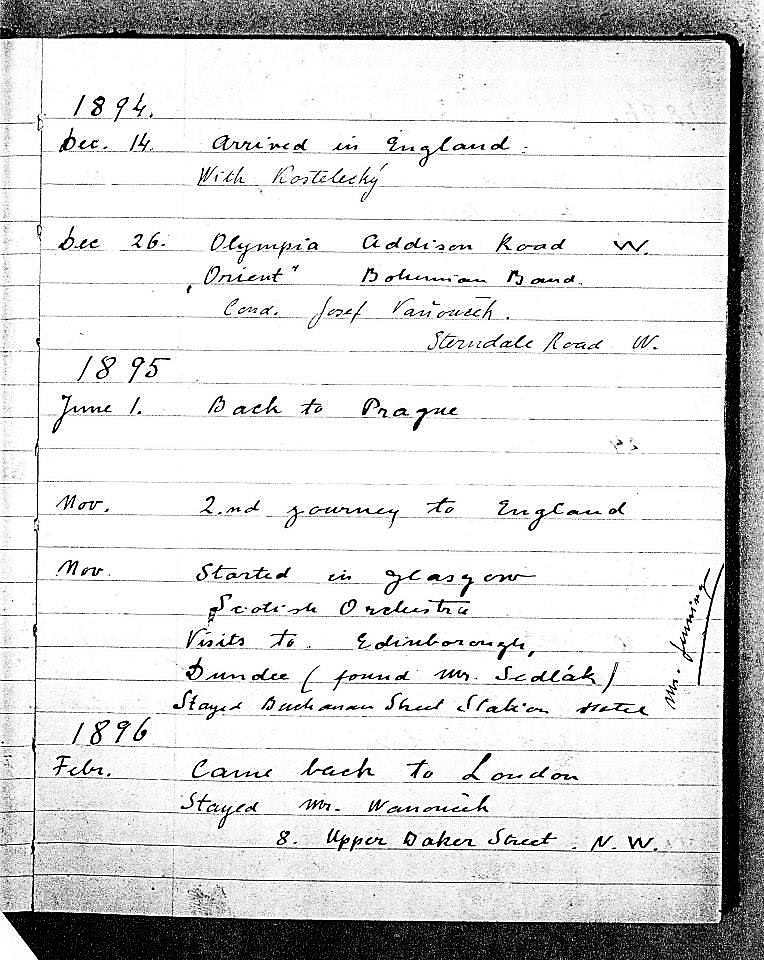 1894.
Dec. 14. Arrived in England.
With Kostelecký
Dec 26. Olympia Addison Road W.
"Orient" Bohemian Band.
Cond. Josef Vaňouček.
Sterndale Road W.
1895
June 1. Back to Prague
Nov. 2.nd yourney to England
Nov. Started in Glasgow
Scotish Orchestra
Visits to Edinborough,
Dundee (found Mr. Sedlák)
Stayed Buchanan Street Station Hotel
Mr. Jenning
1896
Febr. Came back to London
Stayed Mr. Wanouček
8. Upper Baker Street. N.W.